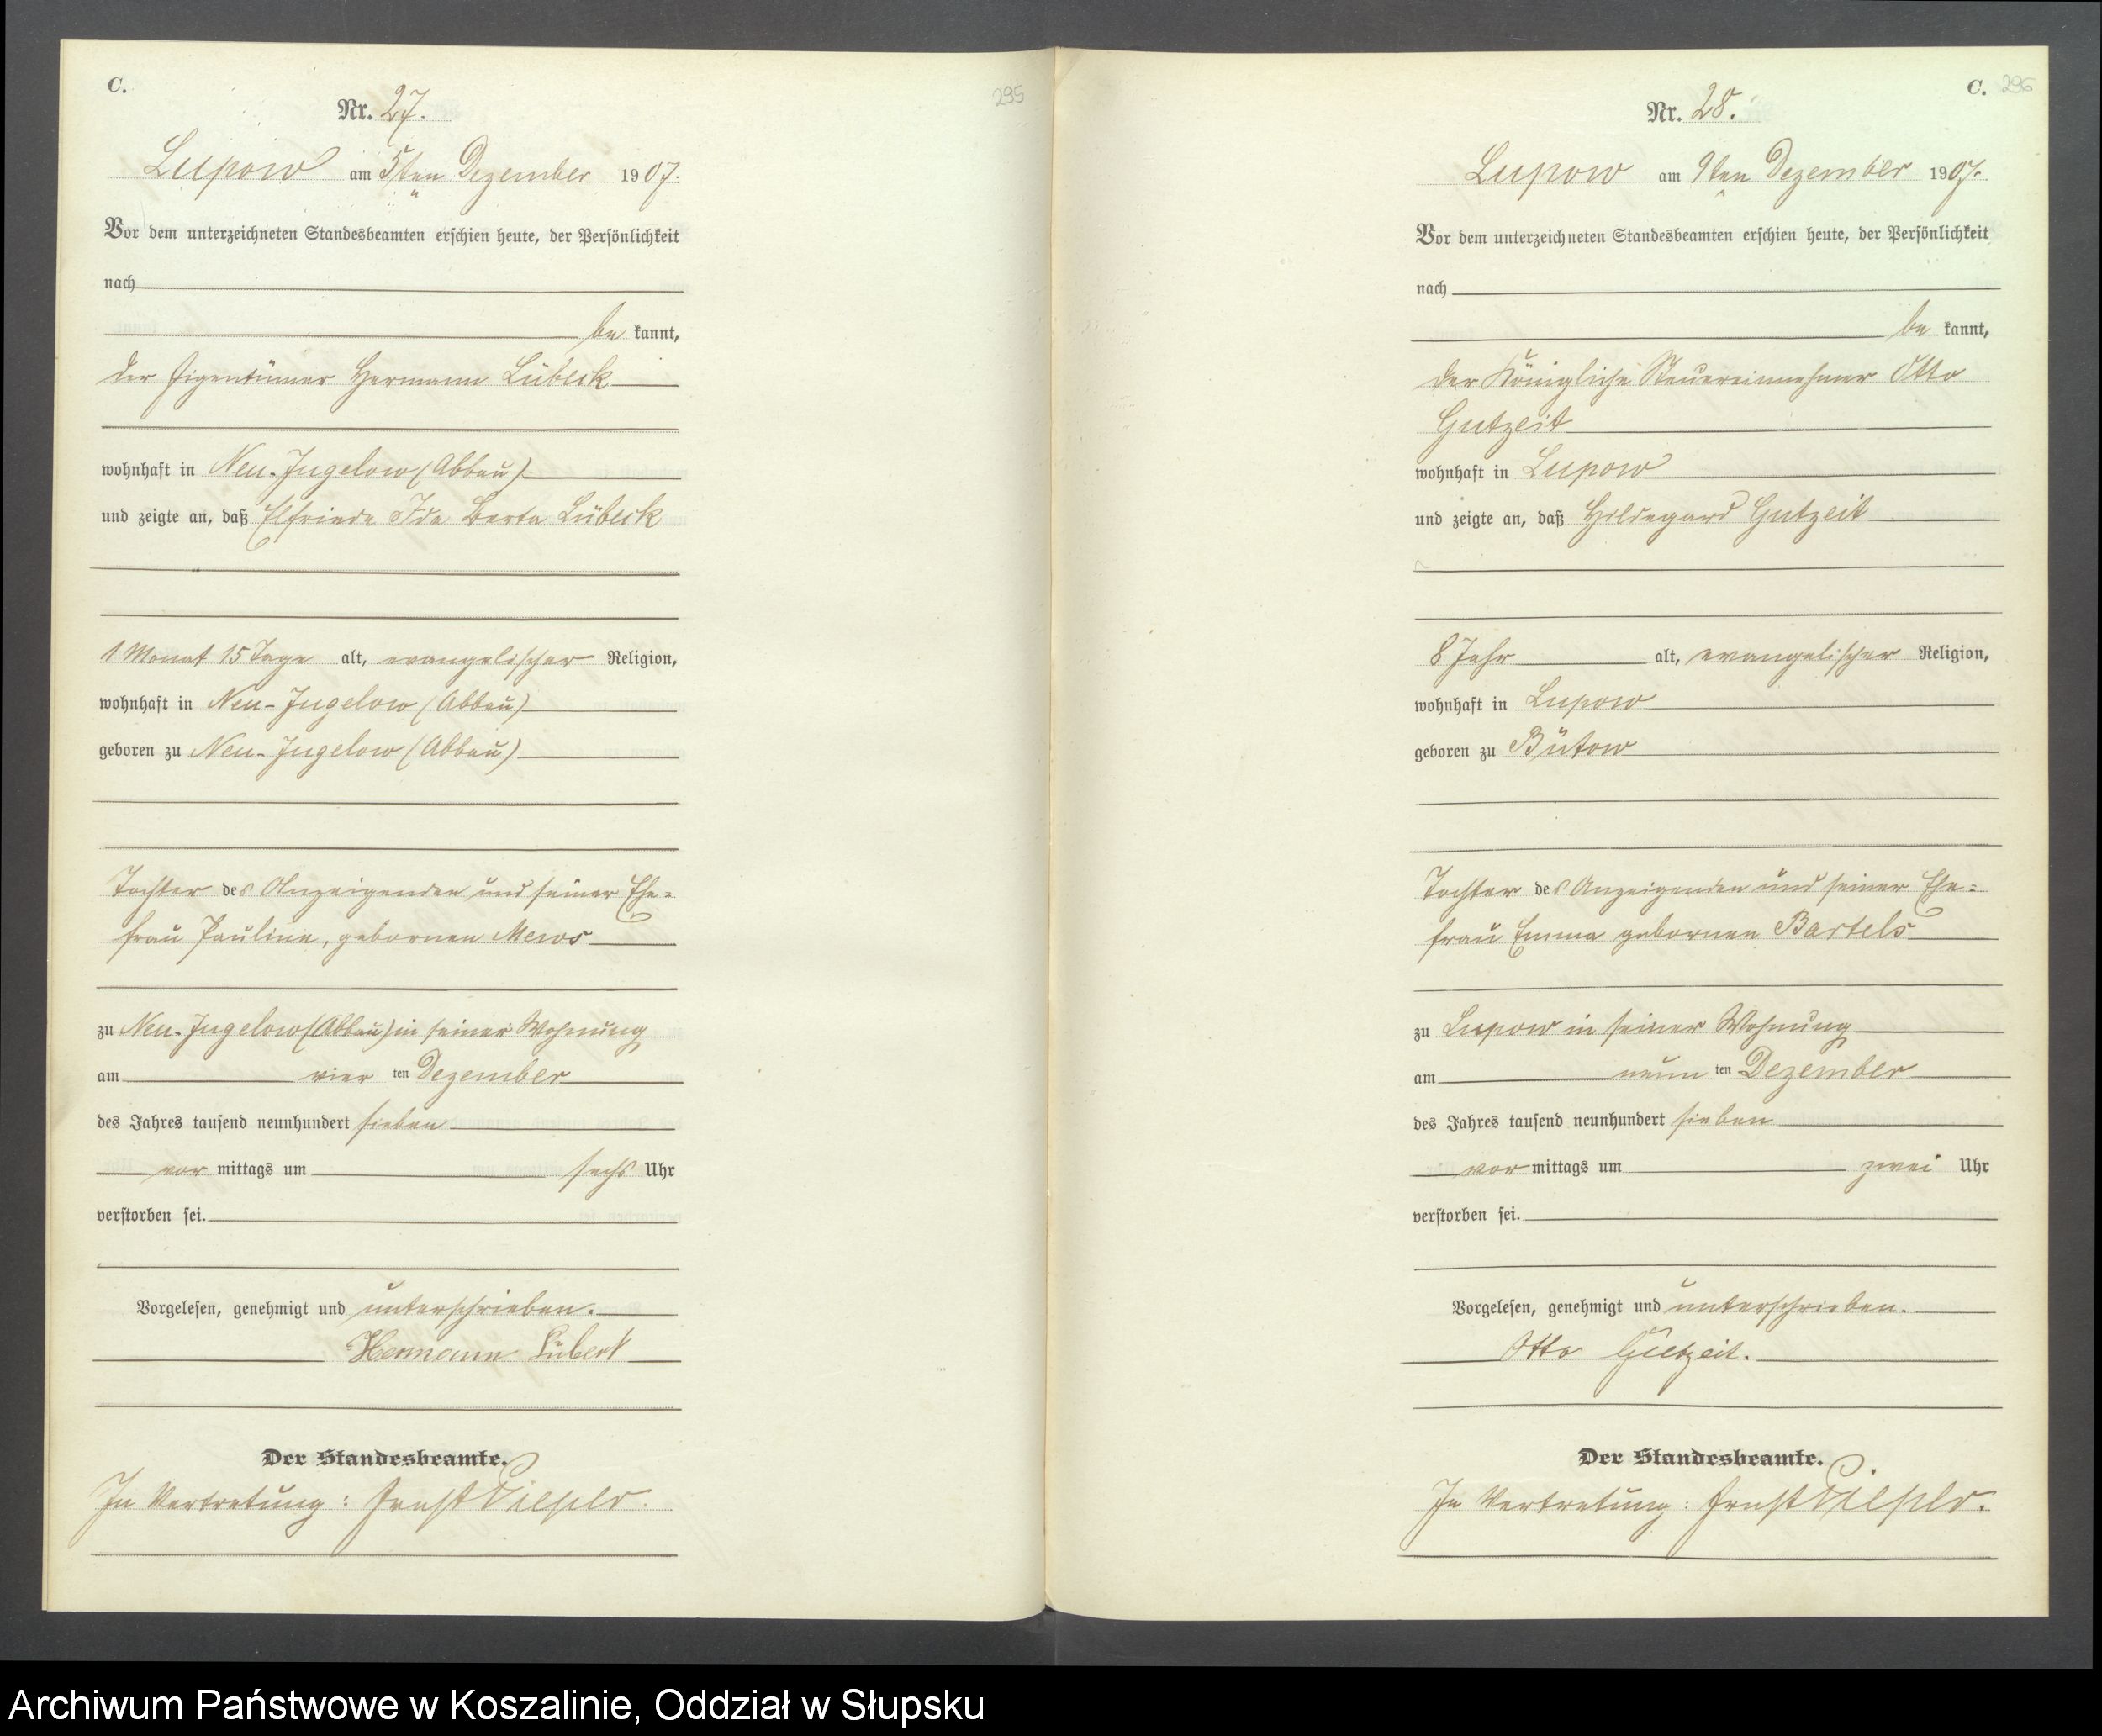 C.
295
Nr. 27.
Lupow am 5ten Dezember 1907.
Vor dem unterzeichneten Standesbeamten erschien heute, der Persönlichkeit
nach
be kannt,
der Eigentümer Hermann Lübeck
wohnhaft in Neu-Jugelow (Abbau)
und zeigte an, daß Elfriede Ida Berta Lübeck
1 Monat 15 Tage alt, evangelischer Religion,
wohnhaft in Neu-Jugelow (Abbau)
geboren zu Neu-Jugelow (Abbau)
Tochter des Anzeigenden und seiner Ehe=
frau Pauline, gebornen Mews
zu Neu-Jugelow (Abbau) in seiner Wohnung
am vier ten Dezember
des Jahres tausend neunhundert sieben
vor mittags um sechs Uhr
verstorben sei.
Vorgelesen, genehmigt und unterschrieben.
Hermann
Der Standesbeamte.
In Vertretung: Ernst
C.
296
Nr. 28.
Lupow am 9ten Dezember 1907.
Vor dem unterzeichneten Standesbeamten erschien heute, der Persönlichkeit
nach
be kannt,
der Königliche Steuereinnehmer Otto
Gutzeit
wohnhaft in Lupow
und zeigte an, daß Hildegard Gutzeit
8 Jahr alt, evangelischer Religion,
wohnhaft in Lupow
geboren zu Bütow
Tochter des Anzeigenden und seiner Ehe=
frau Emma gebornen Bartels
zu Lupow in seiner Wohnung
am neun ten Dezember
des Jahres tausend neunhundert sieben
vor mittags um zwei Uhr
verstorben sei.
Vorgelesen, genehmigt und unterschrieben.
Otto Gutzeit.
Der Standesbeamte.
In Vertretung: Ernst
Archiwum Państwowe w Koszalinie, Oddział w Słupsku